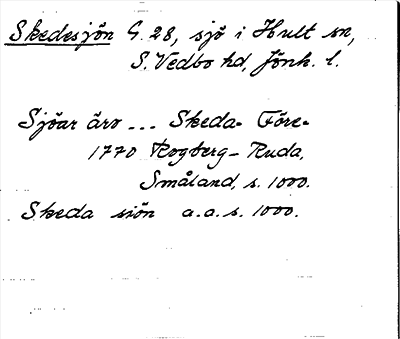 Skedesjön G. 28, sjö i Hult sn,
S. Vedbo hd, Jönk. l.
Sjöar äro --- Skeda- Före-
1770 Rogberg-Ruda,
Småland, s. 1000.
Skeda siön a.a.s. 1000.